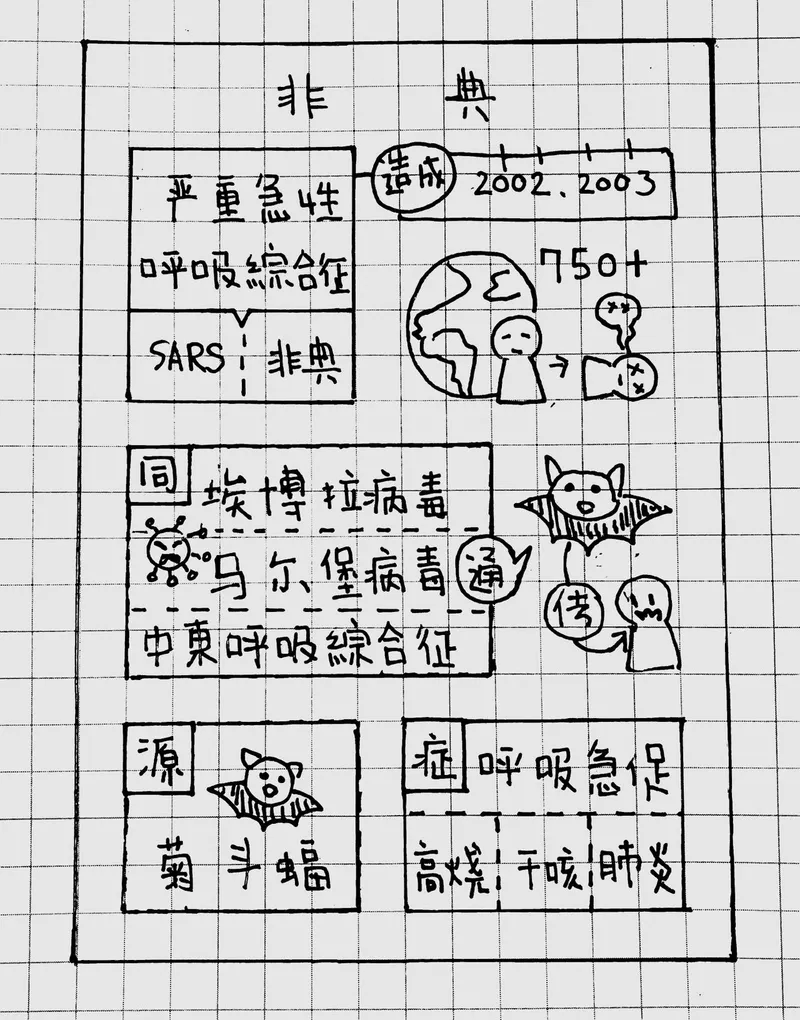 非 典
严重急性
呼吸綜合征
SARS 非典
造成 2002.2003
750+
同 埃博拉病毒
乌尔堡病毒
中東呼吸綜合征
通
传
源
菊斗蝠
症 呼吸急促
高烧 干咳 肺炎